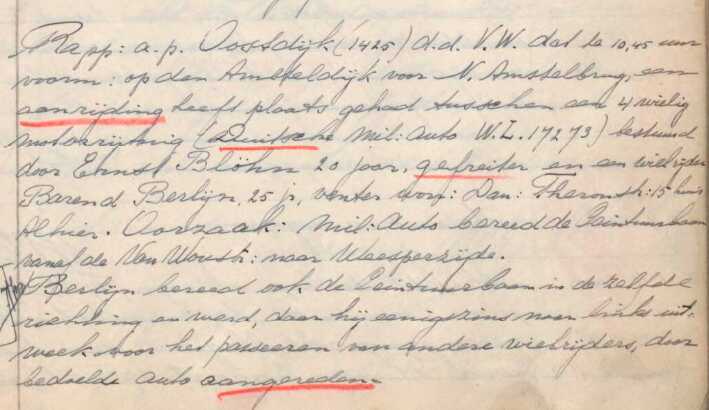 Rapp: a.p. Oostdijk (1425) d.d. V.W. dat te 10,45 uur
voorm: op den Amsteldijk voor N. Amstelbrug, een
aanrijding heeft plaats gehad tusschen een 4 wielig
motorrijtuig (Duitsche Mil: Auto W.L. 17273) bestuurd
door Ernst Blöhn 20 jaar, gefreiter en een wielrijder
Barend Berlijn, 25 jr, venter won: Dan: Theronstr: 15 huis
Alhier. Oorzaak: Mil: Auto bereed de Ceintuurbaan
vanaf de Van Woustr: naar Weesperzijde.
Berlijn bereed ook de Ceintuurbaan in de zelfde
richting en werd, daar hij eenigszins naar links uit-
week voor het passeeren van andere wielrijders, door
bedoelde auto aangereden.